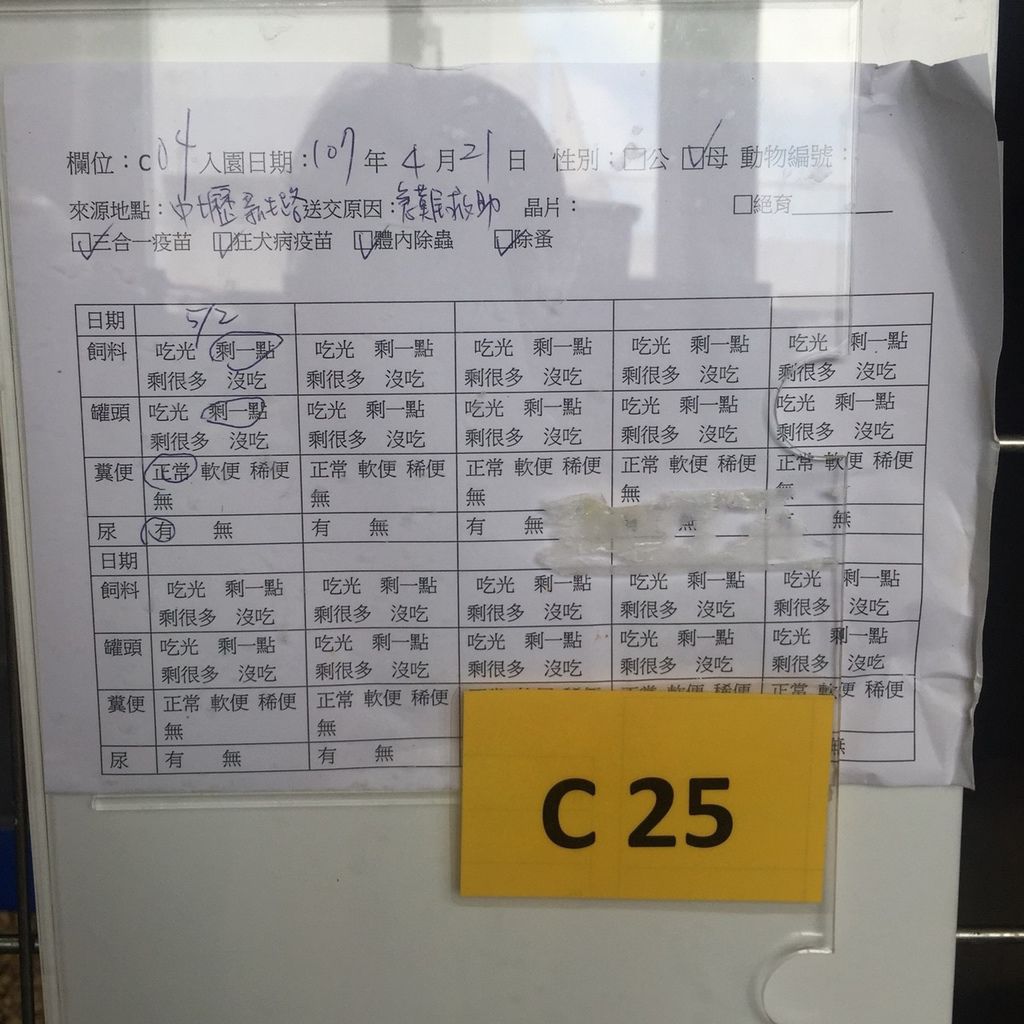 欄位：C04 入園日期：107年4月21日 性別：□公 ☑母 動物編號：
來源地點：中壢 送交原因：急難救助 晶片： □絕育
☑三合一疫苗 ☑狂犬病疫苗 ☑體內除蟲 ☑除蚤
日期 5/2
飼料 吃光 剩一點 吃光 剩一點 吃光 剩一點 吃光 剩一點 吃光 剩一點
剩很多 沒吃 剩很多 沒吃 剩很多 沒吃 剩很多 沒吃 剩很多 沒吃
罐頭 吃光 剩一點 吃光 剩一點 吃光 剩一點 吃光 剩一點 吃光 剩一點
剩很多 沒吃 剩很多 沒吃 剩很多 沒吃 剩很多 沒吃 剩很多 沒吃
糞便 正常 軟便 稀便 正常 軟便 稀便 正常 軟便 稀便 正常 軟便 稀便 正常 軟便 稀便
無 無 無 無 無
尿 有 無 有 無 有 無 無 無
日期
飼料 吃光 剩一點 吃光 剩一點 吃光 剩一點 吃光 剩一點 吃光 剩一點
剩很多 沒吃 剩很多 沒吃 剩很多 沒吃 剩很多 沒吃 剩很多 沒吃
罐頭 吃光 剩一點 吃光 剩一點 吃光 剩一點 吃光 剩一點 吃光 剩一點
剩很多 沒吃 剩很多 沒吃 剩很多 沒吃 剩很多 沒吃 剩很多 沒吃
糞便 正常 軟便 稀便 正常 軟便 稀便 正常 軟便 稀便 正常 軟便 稀便 正常 軟便 稀便
無 無
尿 有 無 有 無 無
C 25